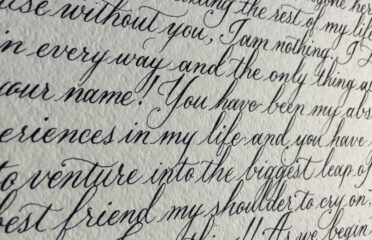 the rest of my life
use without you, I am nothing. I
in every way and the only thing
your name! You have been my abs
eriences in my life and you have
to venture into the biggest leap of
best friend my shoulder to cry on.
!! As we begin